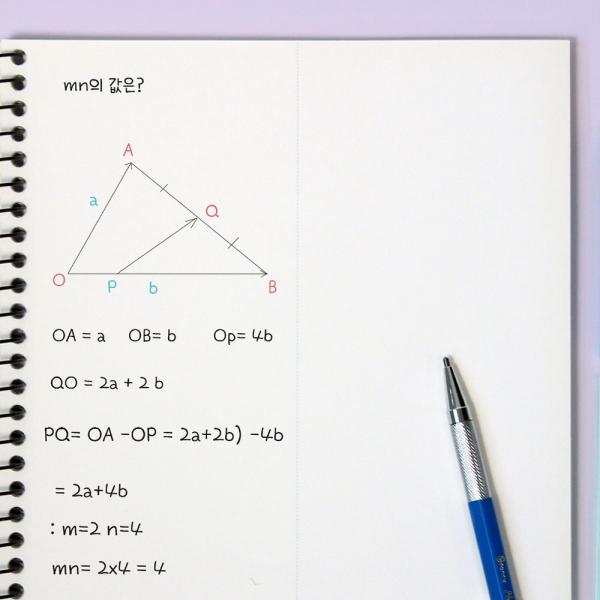 mn의 값은?
A
a
Q
O
P
b
B
OA = a OB= b Op= 4b
QO = 2a + 2 b
PQ= OA -OP = 2a+2b) -4b
= 2a+4b
: m=2 n=4
mn= 2x4 = 4